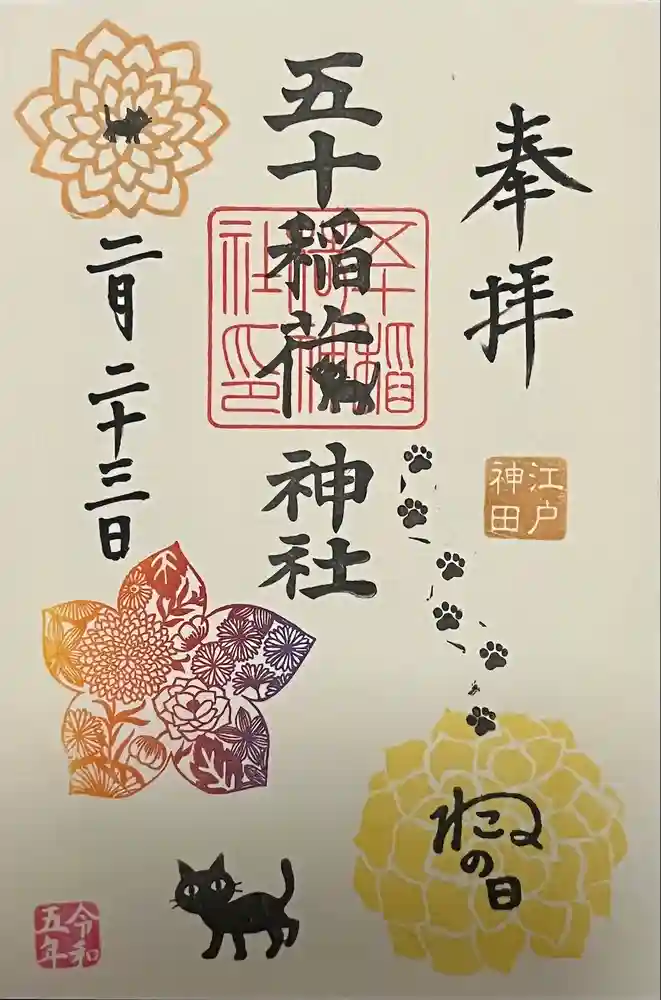 奉拝
江戸
神田
五十稲荷神社
二月二十三日
ねこの日
令和
五年